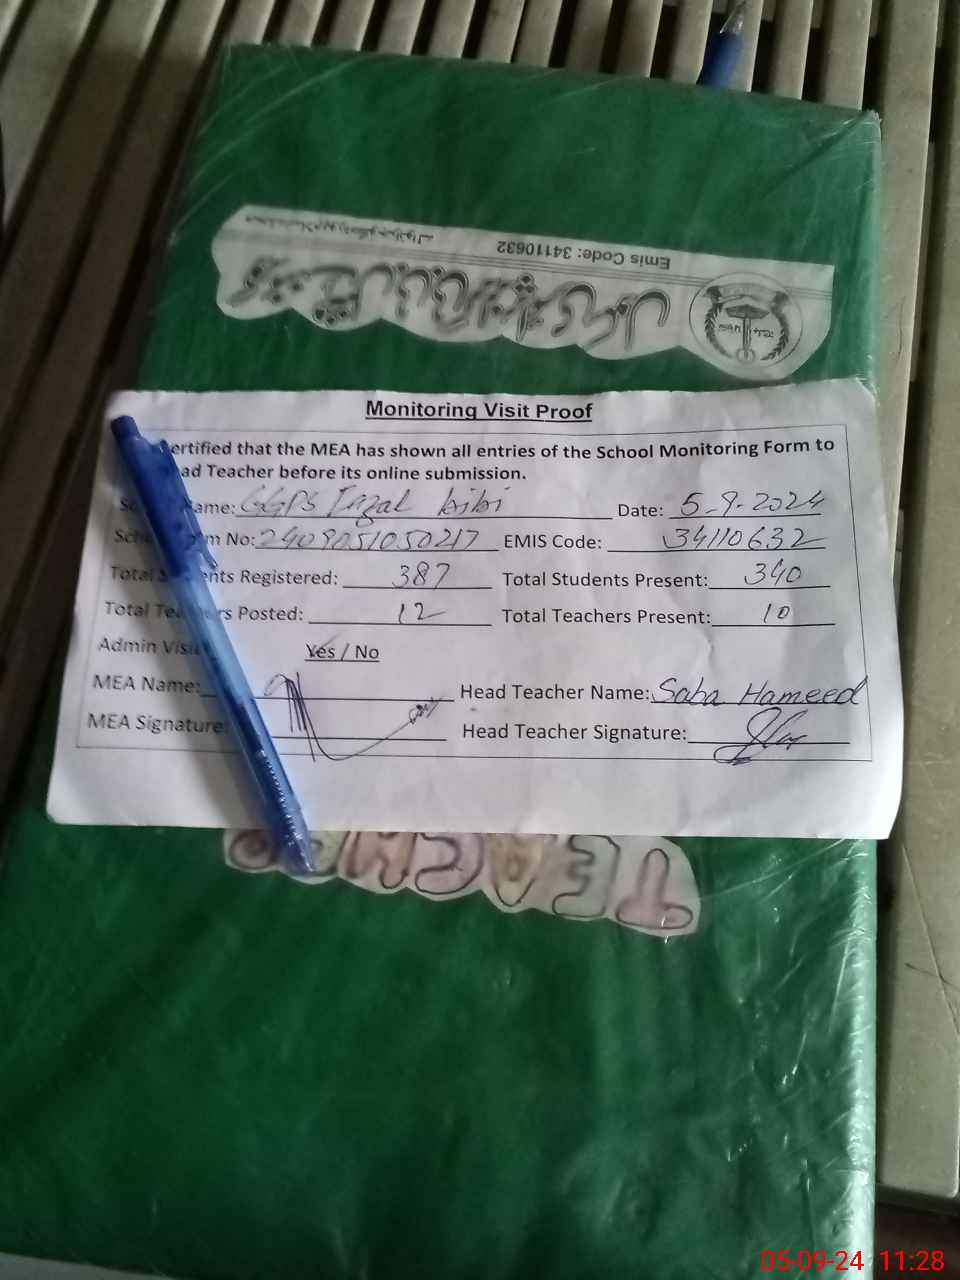 Emis Code: 34110632
Monitoring Visit Proof
ertified that the MEA has shown all entries of the School Monitoring Form to
ad Teacher before its online submission.
ame: GGPS Fazal bibi Date: 5-9-2024
m No: 2409051050217 EMIS Code: 34110632
Total nts Registered: 387 Total Students Present: 340
Total Tea rs Posted: 12 Total Teachers Present: 10
Admin Visi Yes / No
MEA Name: Head Teacher Name: Saba Hameed
MEA Signature: Head Teacher Signature:
TEACHER
05-09-24 11:28